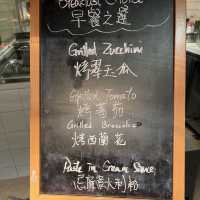 Breakfast Choice
早餐之選
Grilled Zucchini
烤翠玉瓜
Grilled Tomato
烤蕃茄
Grilled Broccolini
烤西蘭花
Pasta in Cream Sauce
忌廉意大利粉